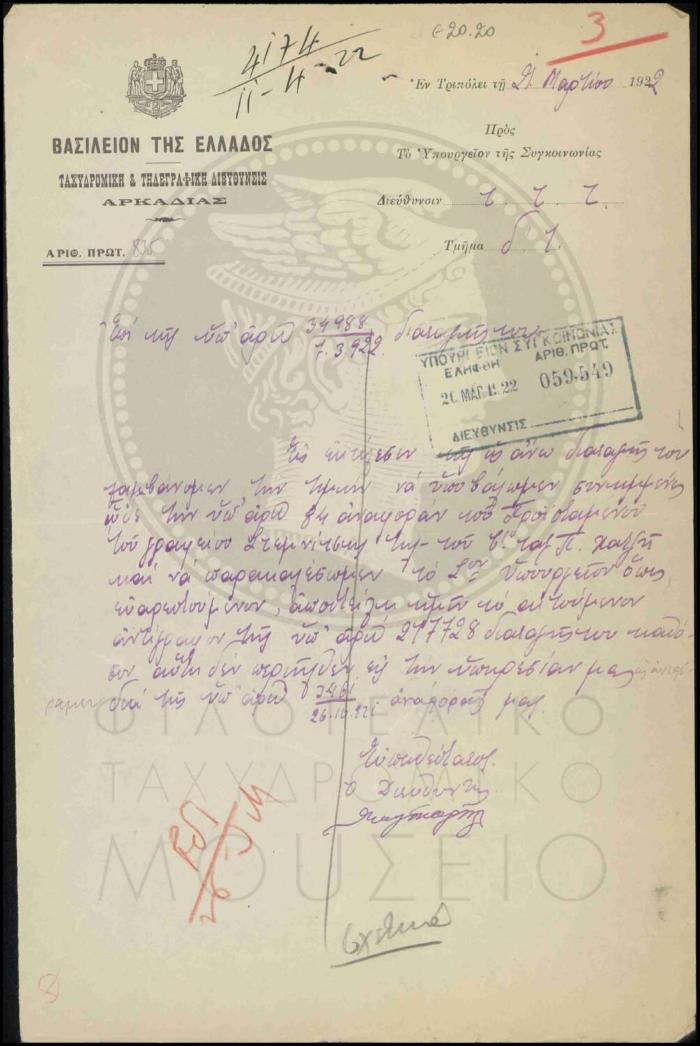 €20.20
3
4174
11-4-22
Ἐν Τριπόλει τῇ 21 Μαρτίου 1922
ΒΑΣΙΛΕΙΟΝ ΤΗΣ ΕΛΛΑΔΟΣ
ΤΑΧΥΔΡΟΜΙΚΗ & ΤΗΛΕΓΡΑΦΙΚΗ ΔΙΕΥΘΥΝΣΙΣ
ΑΡΚΑΔΙΑΣ
ΑΡΙΘ. ΠΡΩΤ. 835
Πρὸς
Τὸ Ὑπουργεῖον τῆς Συγκοινωνίας
Διεύθυνσιν τ. τ. τ.
Τμῆμα
Ἐπὶ τῆς ὑπ' ἀριθ 34988 διαταγῆς του
7.3.922
ΥΠΟΥΡΓΕΙΟΝ ΣΥΓΚΟΙΝΩΝΙΑΣ
ΕΛΗΦΘΗ ΑΡΙΘ. ΠΡΩΤ.
ΜΑΡ 1922 059,549
ΔΙΕΥΘΥΝΣΙΣ
Εἰς ἐκτέλεσιν τῆς ὡς ἄνω διαταγῆς του
λαμβάνομεν τὴν τιμὴν νὰ ὑποβάλωμεν συνημμένως
ὧδε τὴν ὑπ' ἀριθ 84 ἀναφορὰν τοῦ Προϊσταμένου
τοῦ γραφείου Στεμνίτσης
καὶ νὰ παρακαλέσωμεν τὸ Σον Ὑπουργεῖον ὅπως
εὐαρεστούμενον, ἀποστείλῃ ἡμῖν τὸ αἰτούμενον
ἀντίγραφον τῆς ὑπ' ἀριθ 217728 διαταγῆς του καθό-
σον αὕτη δὲν περιῆλθεν εἰς τὴν ὑπηρεσίαν μας
διὰ τῆς ὑπ' ἀριθ ἀναφορᾶς μας.
26.10.921
Εὐπειθέστατος
Ὁ Διευθυντής
Σχετικά
8
ΦΙΛΟΤΕΛΙΚΟ
ΤΑΧΥΔΡΟΜΙΚΟ
ΜΟΥΣΕΙΟ